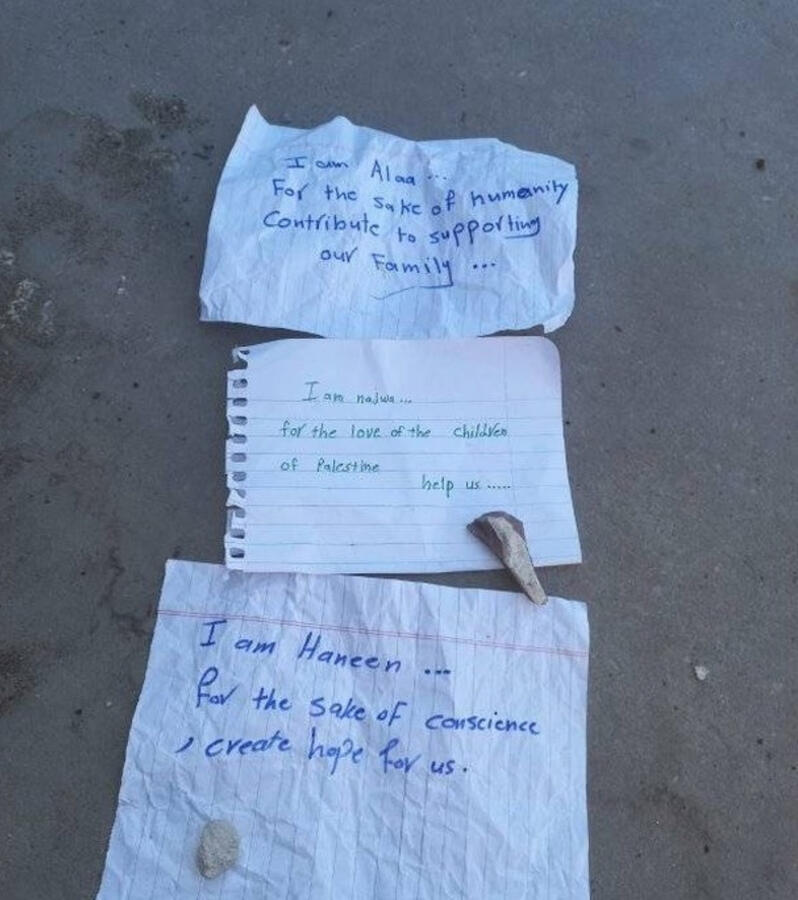 I am Alaa ...
For the sake of humanity
Contribute to supporting
our Family ...
I am najwa ...
for the love of the children
of Palestine
help us .....
I am Haneen ...
for the sake of conscience
, create hope for us.